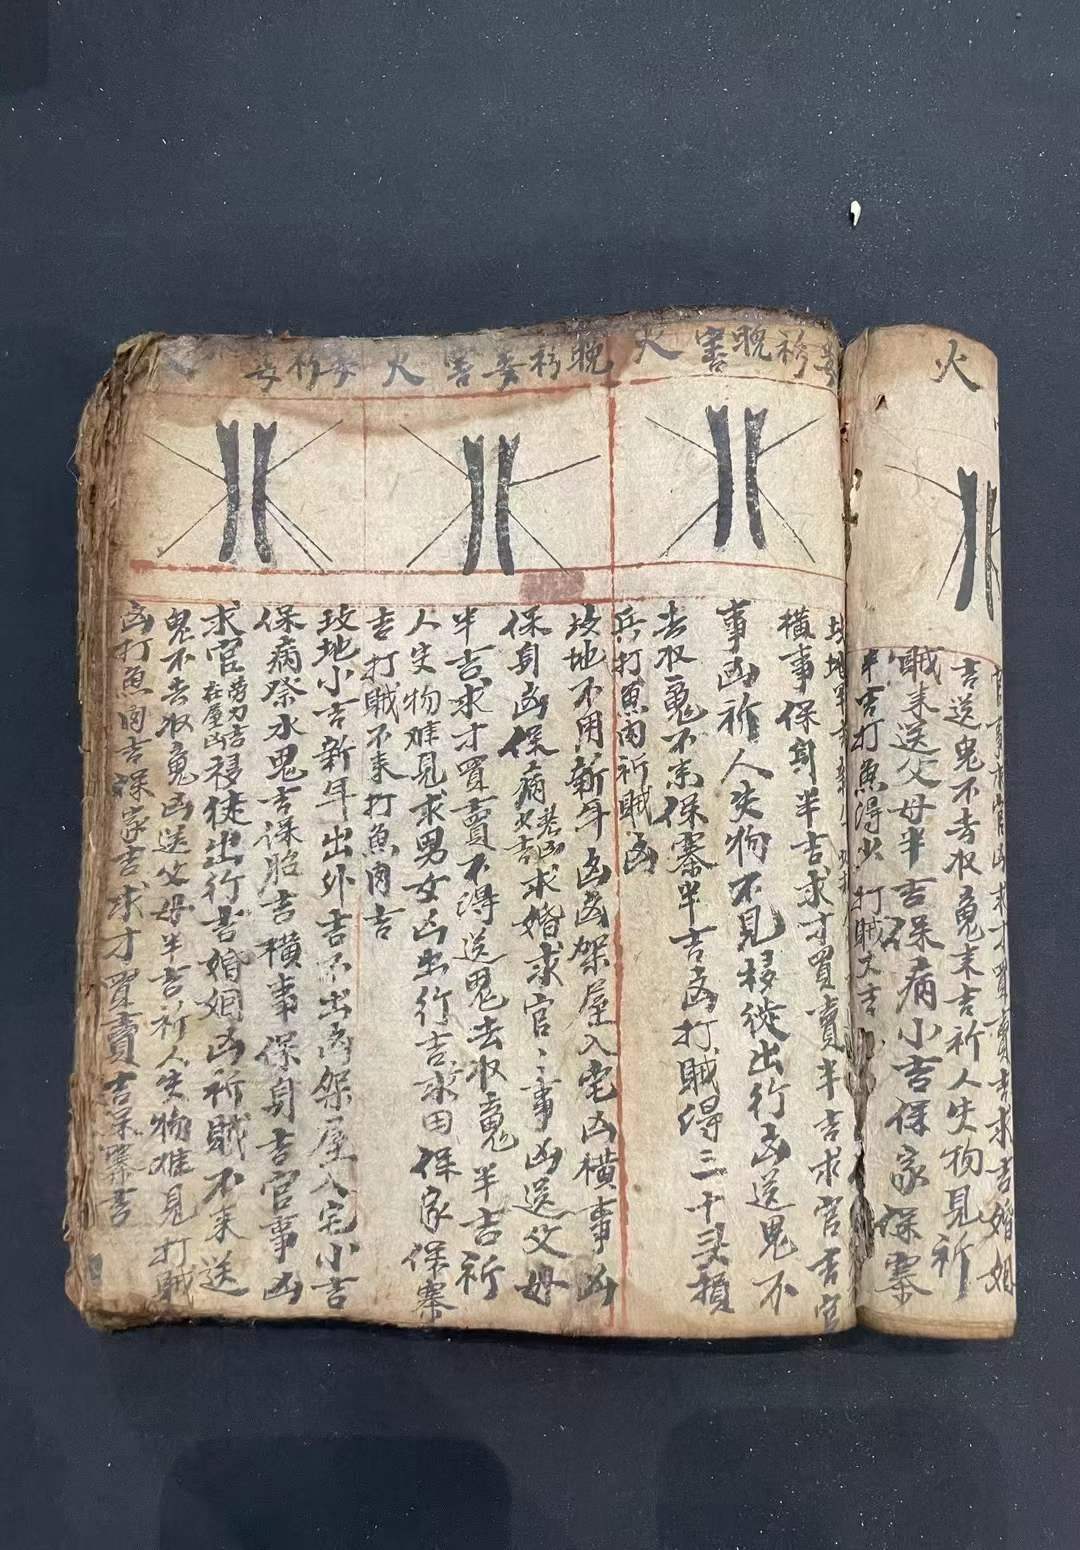 火
吉送鬼不去收魂末吉祈人失物見祈
賊末送父母半吉保病小吉保家保寨
半吉打魚得少打賊大吉
橫事保身半吉求才買賣半吉求官吉官
事凶祈人失物不見移徙出行凶送鬼不
去收魂不來保寨半吉凶打賊得三十头損
兵打魚肉祈賊凶
坟地不用新年凶凶架屋入宅凶橫事凶
保身凶保病老凶少吉求婚求官〻事凶送父母
半吉求才買賣不得送鬼去收魂半吉祈
人失物难見求男女凶出行吉求田保家保寨
吉打賊不來打魚肉吉
坟地小吉新年出外吉不出凶架屋入宅小吉
保病祭水鬼吉保胎吉橫事保身吉官事凶
求官旁力吉在屋凶移徙出行吉婚姻凶祈賊不來送
鬼不去收魂凶送父母半吉祈人失物难見打賊
凶打魚肉吉保家吉求才買賣吉保寨吉